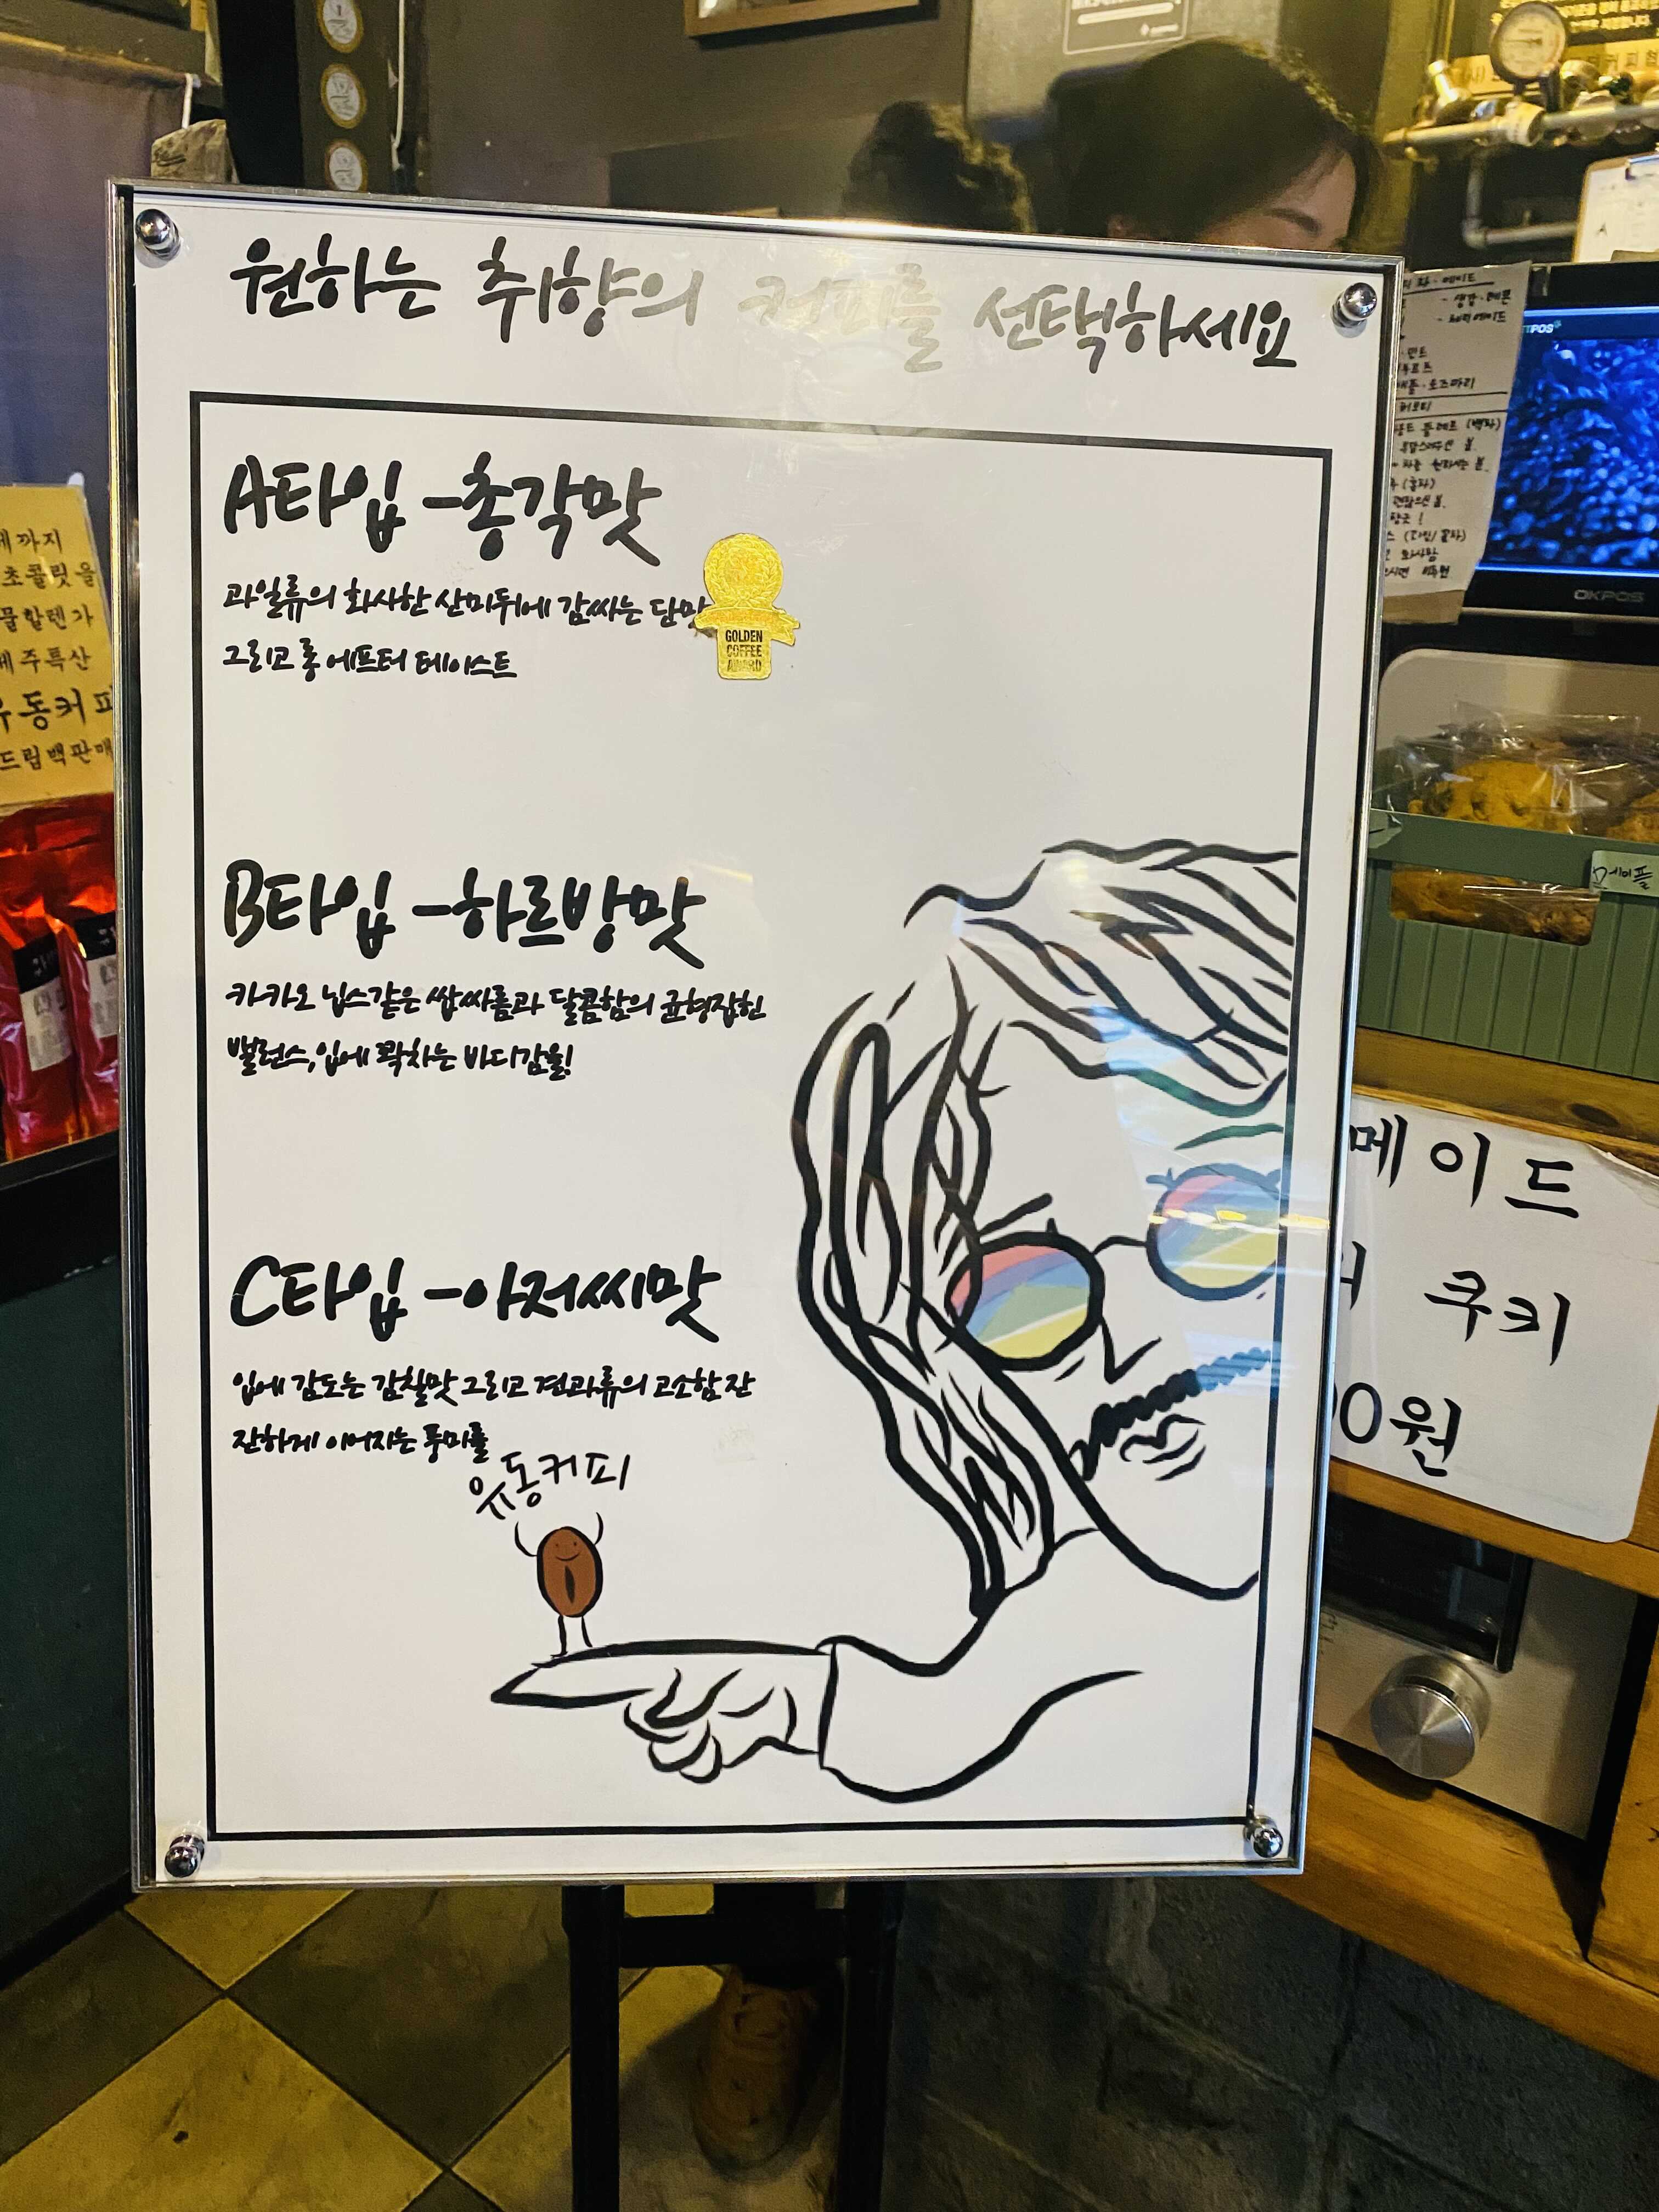 원하는 취향의 커피를 선택하세요
A타입 -총각맛
과일류의 화사한 산미뒤에 감싸는 단맛
그리고 롱 에프터 테이스트
GOLDEN
COFFEE
AWARD
B타입 -하르방맛
카카오 닙스같은 쌉싸름과 달콤함의 균형잡힌
밸런스,입에 꽉차는 바디감을!
C타입 -아저씨맛
입에 감도는 감칠맛 그리고 견과류의 고소함 잔
잔하게 이어지는 풍미를
유동커피
까지
초콜릿을
물할텐가
제주특산
유동커피
드립백판매
생강·레몬
OKPOS
메이플
메이드
쿠키
00원